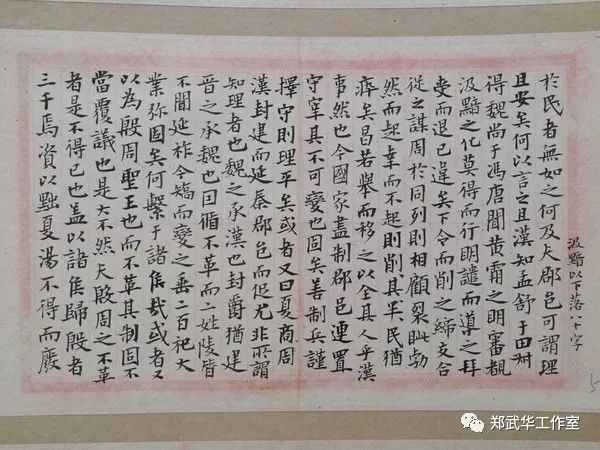 汲黯以下落八十字
於民者無如之何及夫郡邑可謂理
且安矣何以言之且漢知孟舒于田叔
得魏尚于馮唐聞黄霸之明審覩
汲黯之化莫得而行明譴而導之拜
受而退已違矣下令而削之締交合
從之謀周於同列則相顧裂眦勃
然而起幸而不起則削其半民猶
瘁矣曷若舉而移之以全其人乎漢
事然也今國家盡制郡邑連置
守宰其不可變也固矣善制兵謹
擇守則理平矣或者又曰夏商周
漢封建而延秦郡邑而促尤非所謂
知理者也魏之承漢也封爵猶建
晉之承魏也因循不革而二姓陵替
不聞延祚今矯而變之垂二百祀大
業弥固矣何繫于諸侯哉或者又
以為殷周聖王也而不革其制固不
當覆議也是大不然夫殷周之不革
者是不得已也蓋以諸侯歸殷者
三千焉資以黜夏湯不得而廢
郑武华工作室